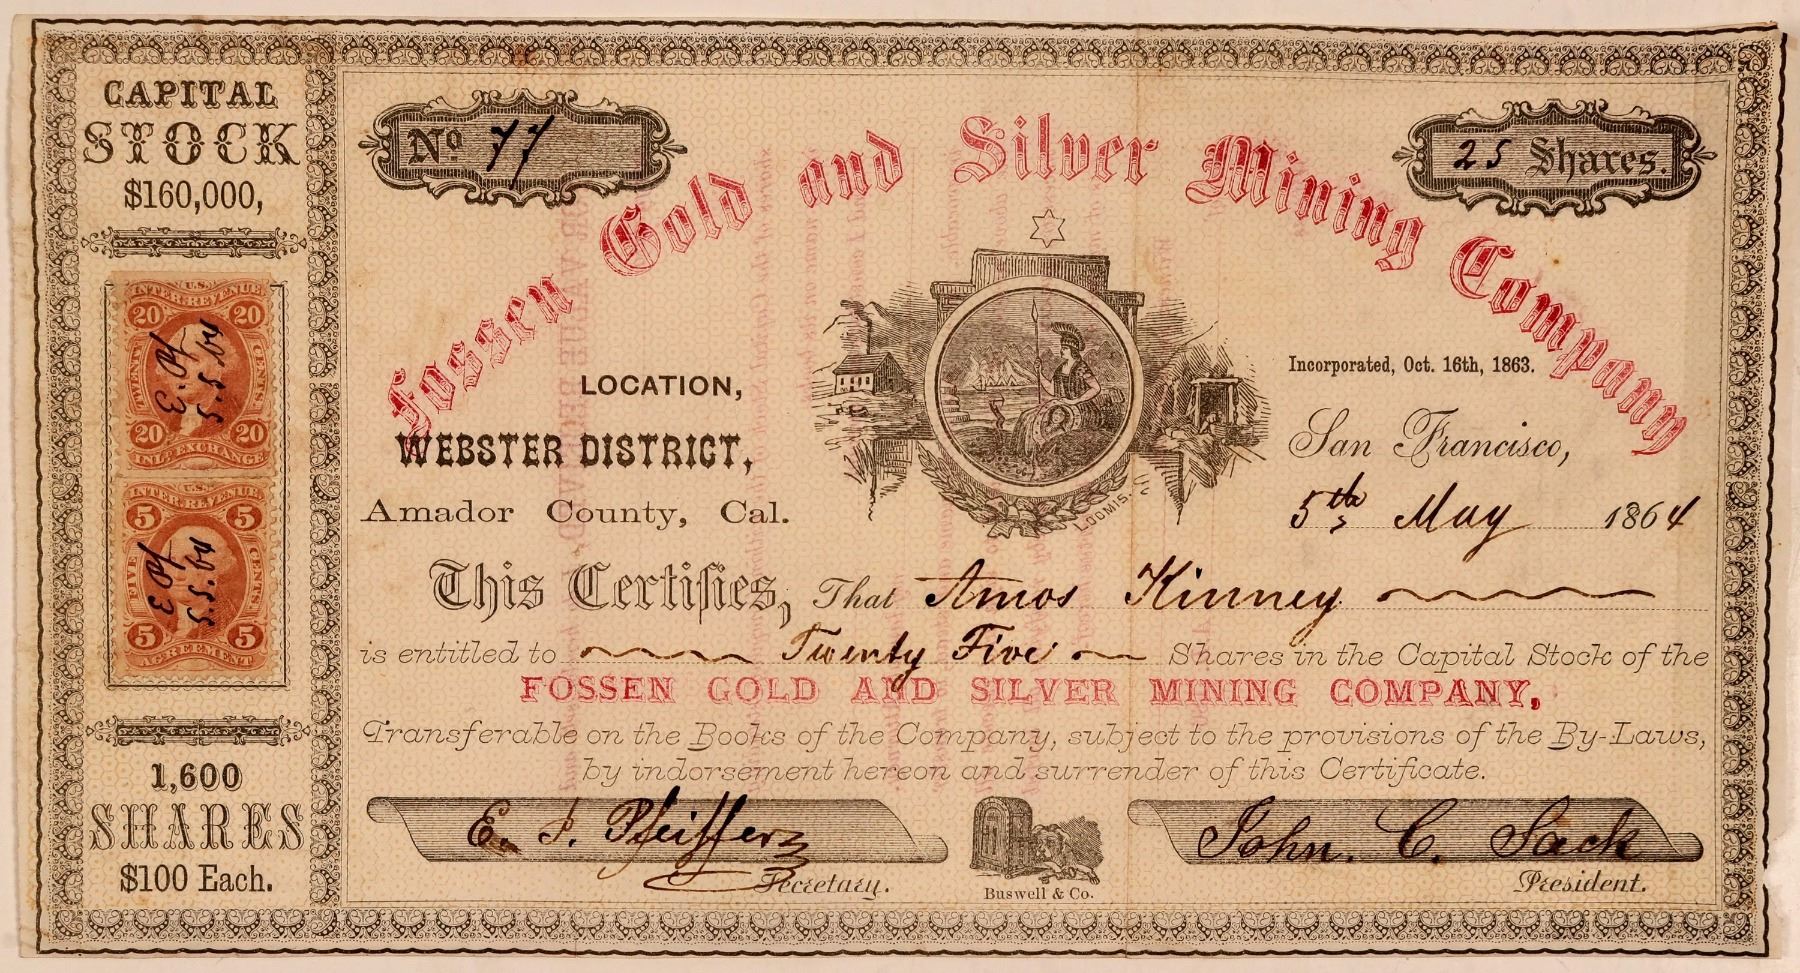 CAPITAL
STOCK
$160,000,
U.S.
INTER. REVENUE
20 20
TWENTY CENTS
20 20
INL. EXCHANGE
E. Pf
5.5.64
U.S.
INTER. REVENUE
5 5
FIVE CENTS
5 5
AGREEMENT
E Pf
5.5.64
1,600
SHARES
$100 Each.
No. 77
25 Shares.
Fossen Gold and Silver Mining Company
LOCATION,
WEBSTER DISTRICT,
Amador County, Cal.
LOOMIS.
Incorporated, Oct. 16th, 1863.
San Francisco,
5th May 1864
This Certifies, That Amos Kinney
is entitled to Twenty Five Shares in the Capital Stock of the
FOSSEN GOLD AND SILVER MINING COMPANY,
Transferable on the Books of the Company, subject to the provisions of the By-Laws,
by indorsement hereon and surrender of this Certificate.
E. F. Pfeiffer
Secretary.
Buswell & Co.
John. C. Sack
President.